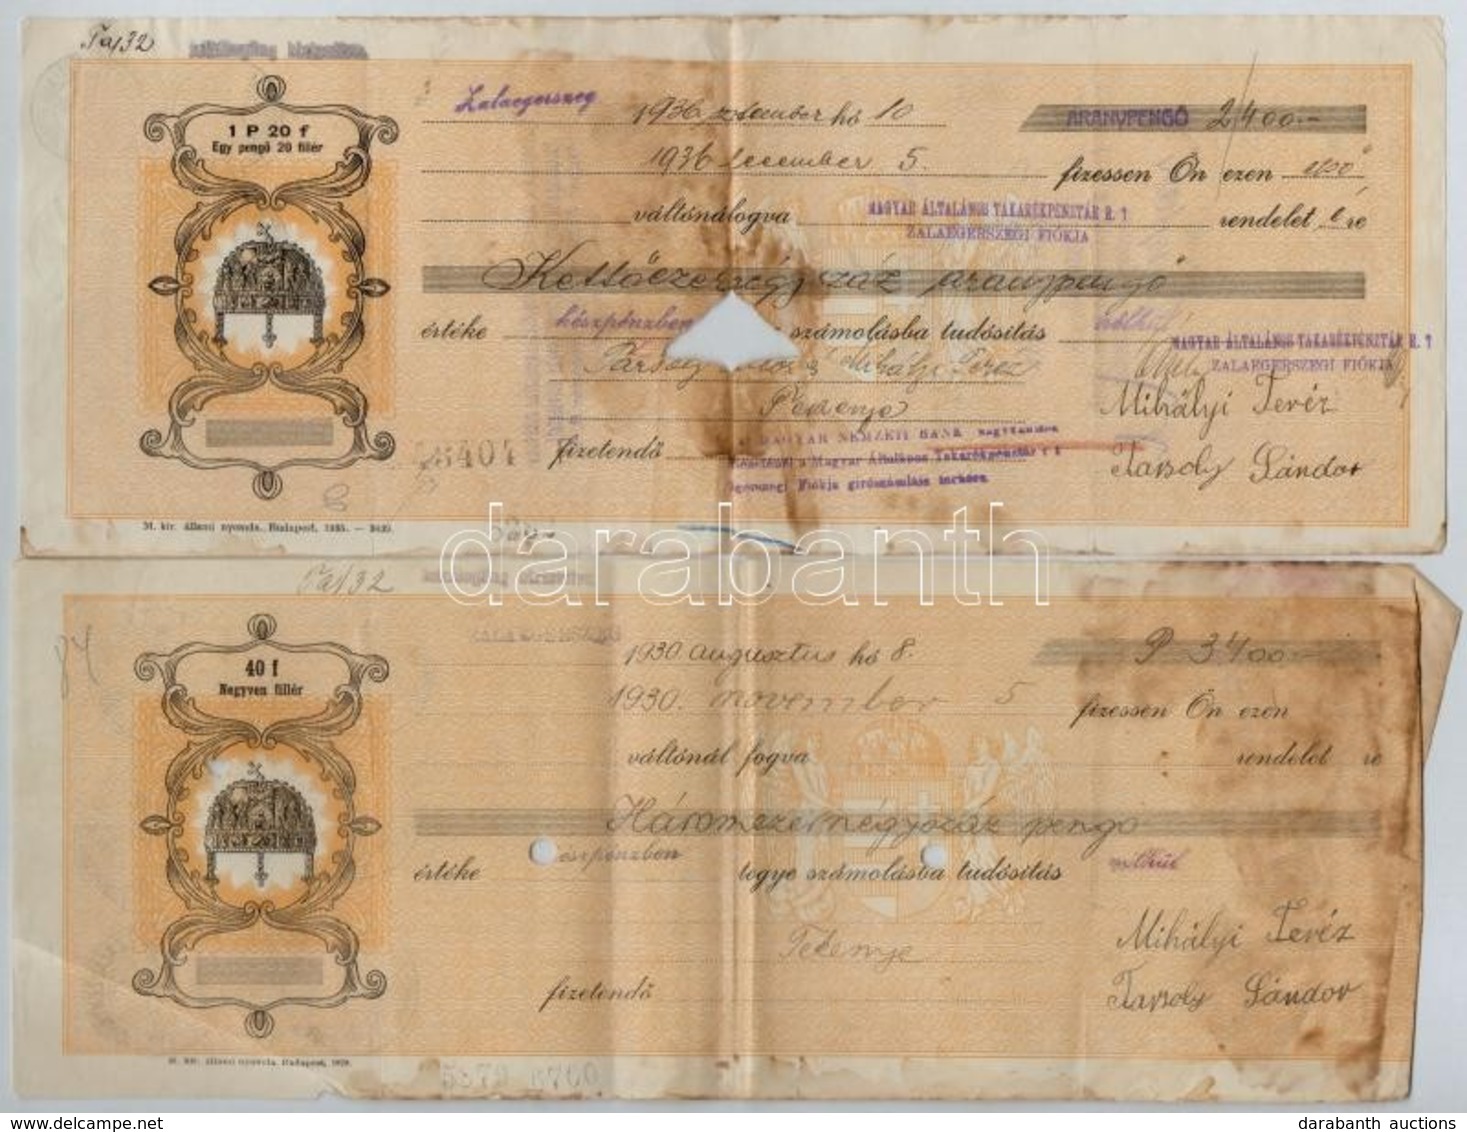 Ta/32
1 P 20 f
Egy pengő 20 fillér
Zalaegerszeg
1936 hó 10
ARANYPENGŐ 2400.-
1936 december 5.
fizessen Ön ezen
váltónál fogva MAGYAR ÁLTALÁNOS TAKARÉKPÉNZTÁR R. T. rendelet re
ZALAEGERSZEGI FIÓKJA
Kettőezernégyszáz aranypengő
értéke készpénzben számolásba tudósítás nélkül
MAGYAR ÁLTALÁNOS TAKARÉKPÉNZTÁR R. T
ZALAEGERSZEGI FIÓKJA
Mihályi Teréz
Mihályi Teréz
fizetendő
MAGYAR NEMZETI BANK
Magyar Általános Takarékpénztár r t
Fiókja girószámlája
Tarsoly Sándor
M. kir. állami nyomda. Budapest, 1935.
darabanth
Ta/32
ZALAEGERSZEG
84
40 f
Negyven fillér
1930. augusztus hó 8.
P 3400.-
1930. november 5 fizessen Ön ezen
váltónál fogva rendelet re
Háromezernégyszáz pengő
értéke készpénzben tegye számolásba tudósítás nélkül
Mihályi Teréz
Tekenye
Tarsoly Sándor
fizetendő
M. kir. állami nyomda. Budapest, 1929.
5379 6700
darabanth auctions